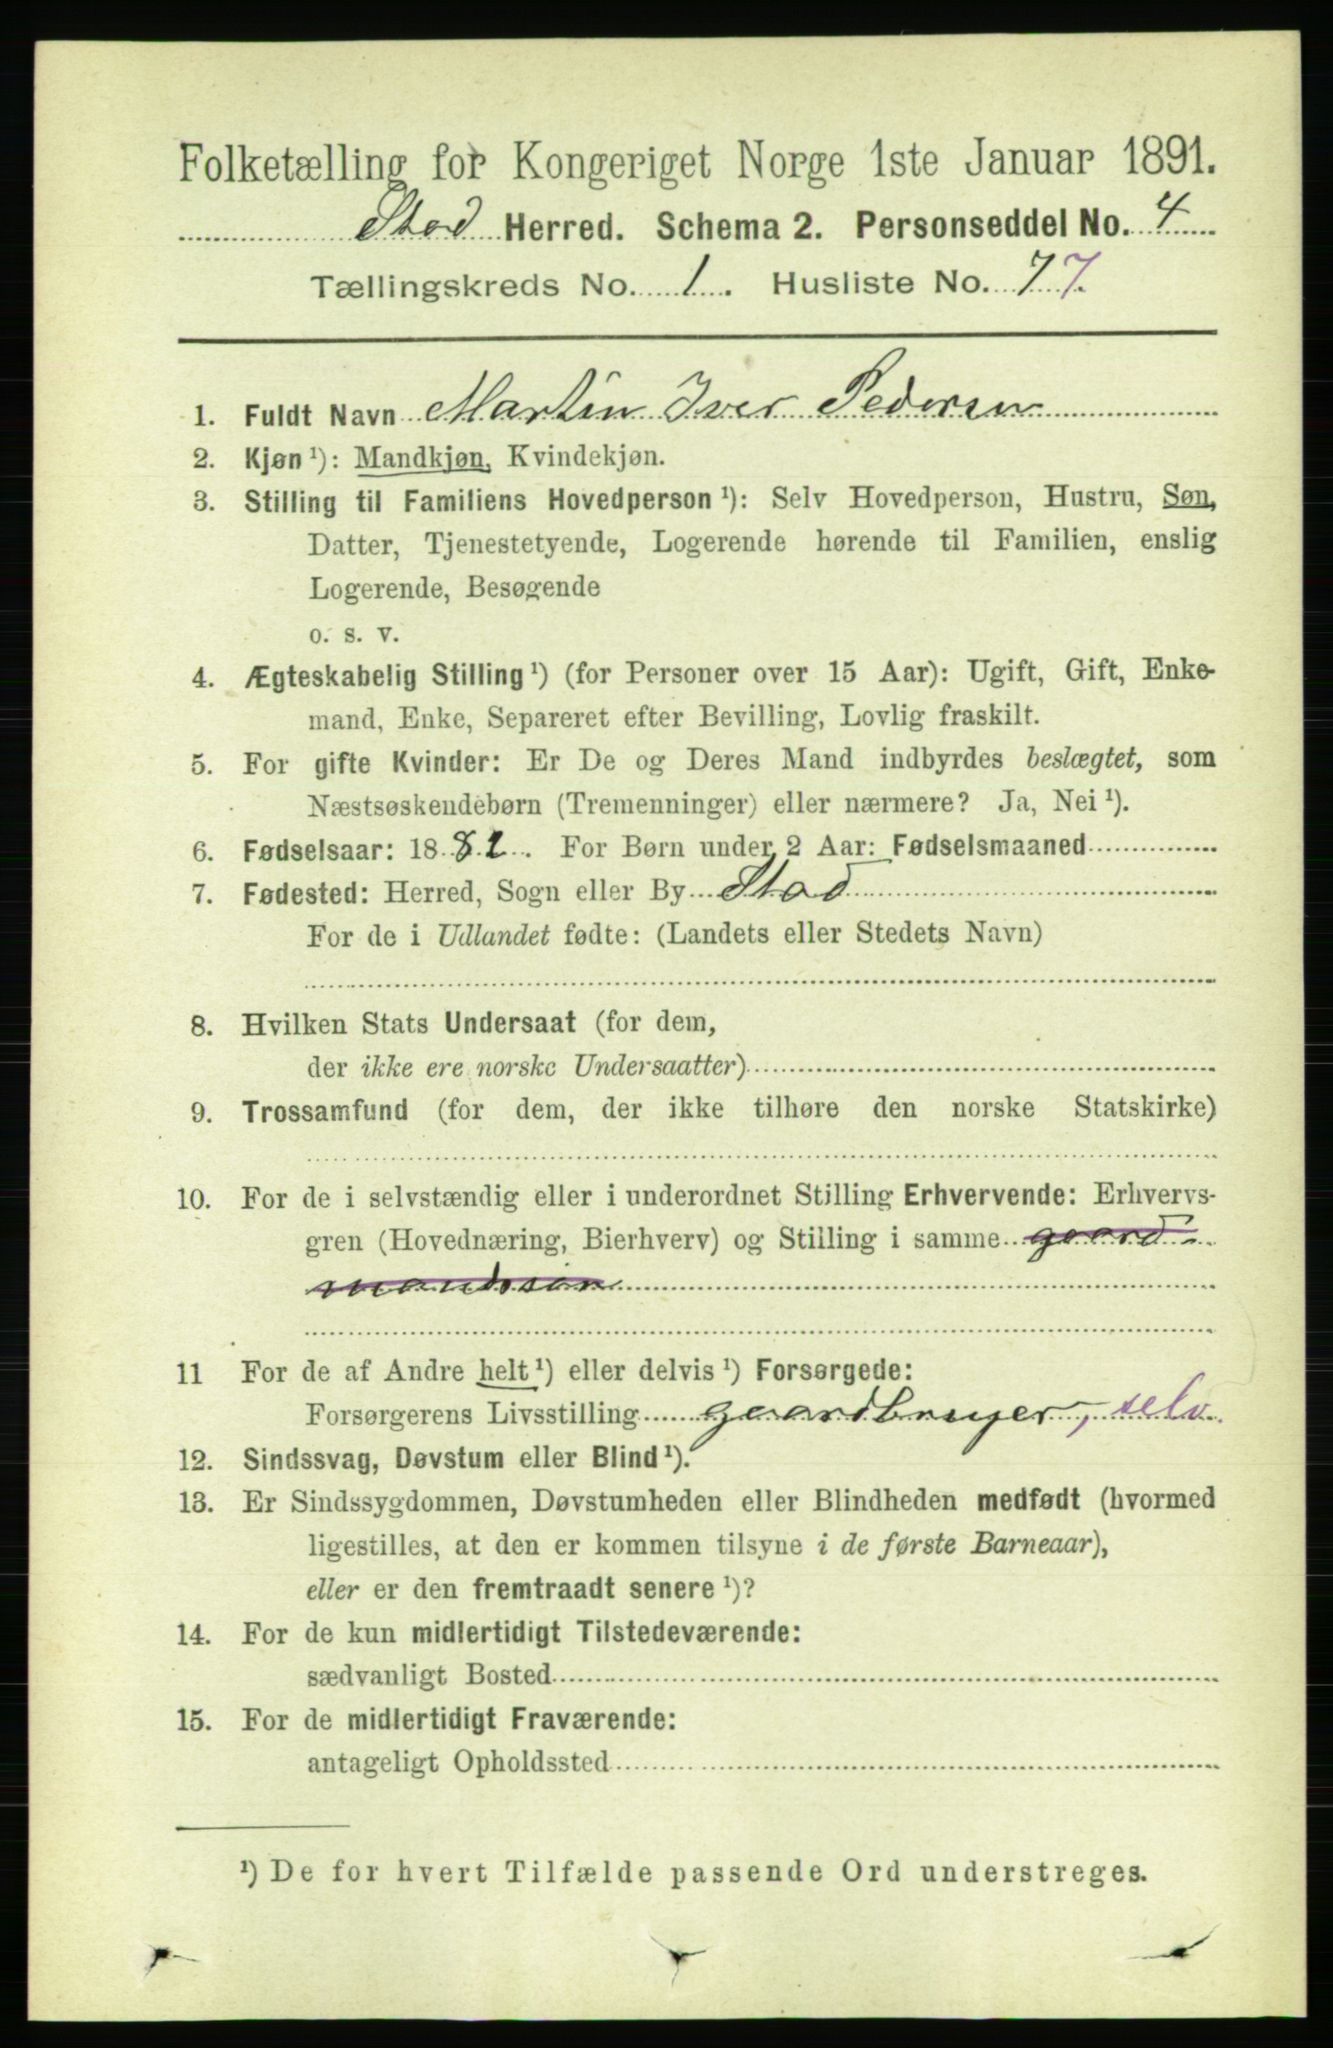 Folketælling for Kongeriget Norge 1ste Januar 1891.
Stod Herred. Schema 2. Personseddel No. 4
Tællingskreds No. 1. Husliste No. 7 7.
1. Fuldt Navn Martin Iver Pedersen
2. Kjøn ¹): Mandkjøn, Kvindekjøn.
3. Stilling til Familiens Hovedperson ¹): Selv Hovedperson, Hustru, Søn,
Datter, Tjenestetyende, Logerende hørende til Familien, enslig
Logerende, Besøgende
o. s. v.
4. Ægteskabelig Stilling ¹) (for Personer over 15 Aar): Ugift, Gift, Enke-
mand, Enke, Separeret efter Bevilling, Lovlig fraskilt.
5. For gifte Kvinder: Er De og Deres Mand indbyrdes beslægtet, som
Næstsøskendebørn (Tremenninger) eller nærmere? Ja, Nei ¹).
6. Fødselsaar: 1882. For Børn under 2 Aar: Fødselsmaaned
7. Fødested: Herred, Sogn eller By Stod
For de i Udlandet fødte: (Landets eller Stedets Navn)
8. Hvilken Stats Undersaat (for dem,
der ikke ere norske Undersaatter)
9. Trossamfund (for dem, der ikke tilhøre den norske Statskirke)
10. For de i selvstændig eller i underordnet Stilling Erhvervende: Erhvervs-
gren (Hovednæring, Bierhverv) og Stilling i samme gaard-
mandssøn
11 For de af Andre helt ¹) eller delvis ¹) Forsørgede:
Forsørgerens Livsstilling gaardbruger, selv.
12. Sindssvag, Døvstum eller Blind ¹).
13. Er Sindssygdommen, Døvstumheden eller Blindheden medfødt (hvormed
ligestilles, at den er kommen tilsyne i de første Barneaar),
eller er den fremtraadt senere ¹)?
14. For de kun midlertidigt Tilstedeværende:
sædvanligt Bosted
15. For de midlertidigt Fraværende:
antageligt Opholdssted
¹) De for hvert Tilfælde passende Ord understreges.